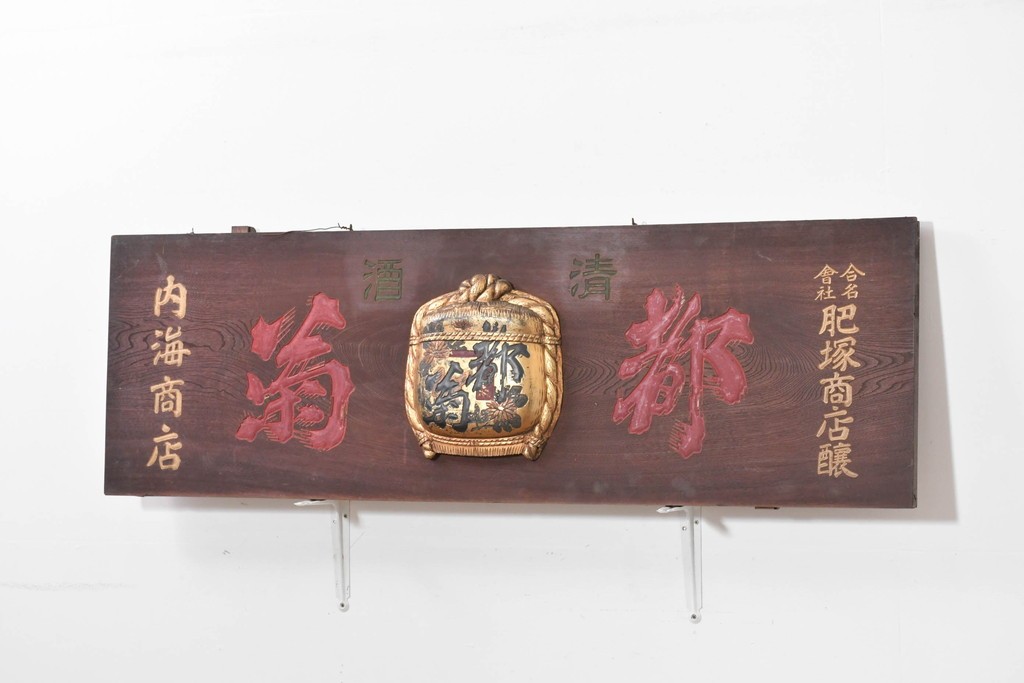 合名
會社
肥塚商店釀
清酒
都菊
都菊
内海商店